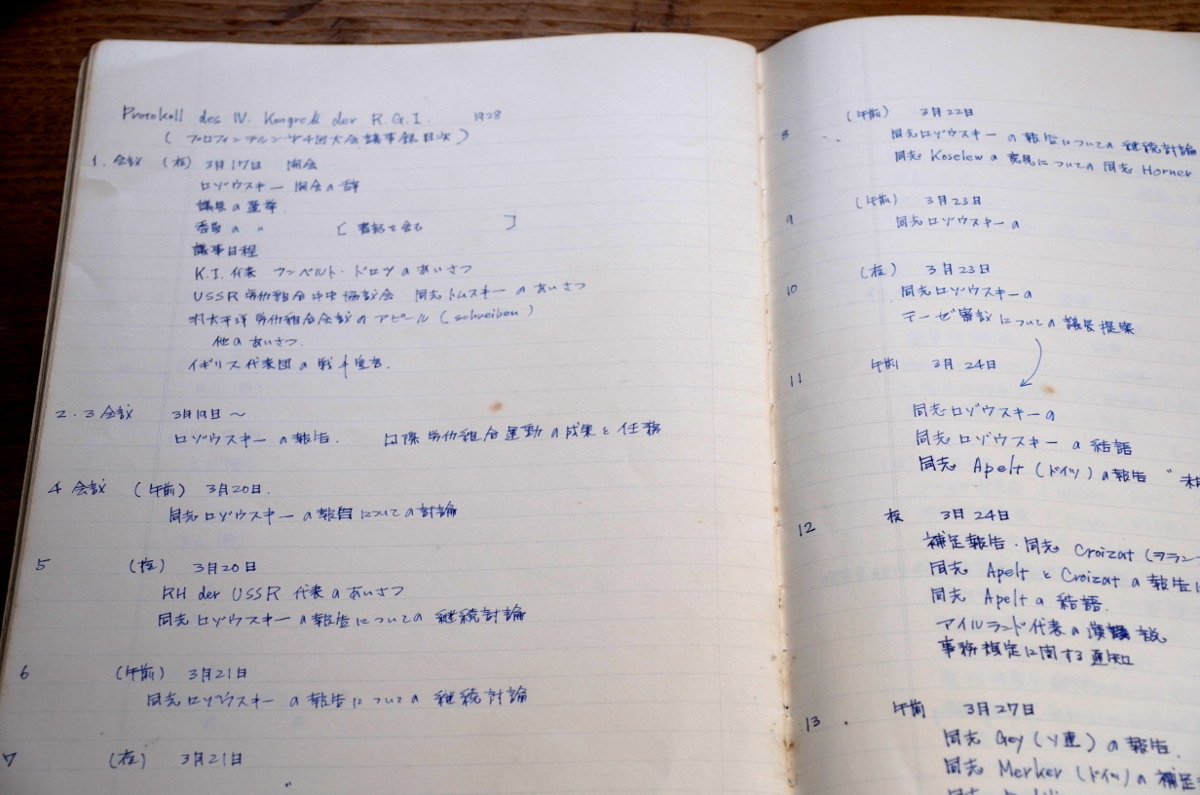 Protokoll des IV. Kongreß der R.G.I. 1928
(プロフィンテルン第4回大会議事録目次)
1. 会议 (夜) 3月17日 開会
ロゾウスキー 開会の辞
議長の選挙
委員の 〃 [書記を含む]
議事日程
K.I. 代表 フンベルト・ドロツのあいさつ
USSR労仂組合中央協议会 同志トムスキーのあいさつ
汎太平洋労仂組合会议のアピール (schreiben)
他のあいさつ.
イギリス代表団の戦斗宣言.
2.3会议 3月19日 〜
ロゾウスキーの報告. 国際労仂組合運動の成果と任務
4会议 (午前) 3月20日.
同志ロゾウスキーの報告についての討論
5 (夜) 3月20日
RH der USSR 代表のあいさつ
同志ロゾウスキーの報告についての継続討論
6 (午前) 3月21日
同志ロゾウスキーの報告についての継続討論
7 (夜) 3月21日
〃
8 (午前) 3月22日
同志ロゾウスキーの報告についての継続討論
同志Koselewの意見についての同志Horner
9 (午前) 3月23日
同志ロゾウスキーの
10 (夜) 3月23日
同志ロゾウスキーの
テーゼ審议についての議長提案
11 午前 3月24日
同志ロゾウスキーの
同志ロゾウスキーの結語
同志 Apelt (ドイツ)の報告 "
12 夜 3月24日
補足報告・同志 Croizat (フラン
同志 ApeltとCroizatの報告に
同志 Apeltの結語.
アイルランド代表の演説
事務規定に関する通知
13. 午前 3月27日
同志 Gey (ソ連)の報告.
同志 Merker (ドイツ)の補足